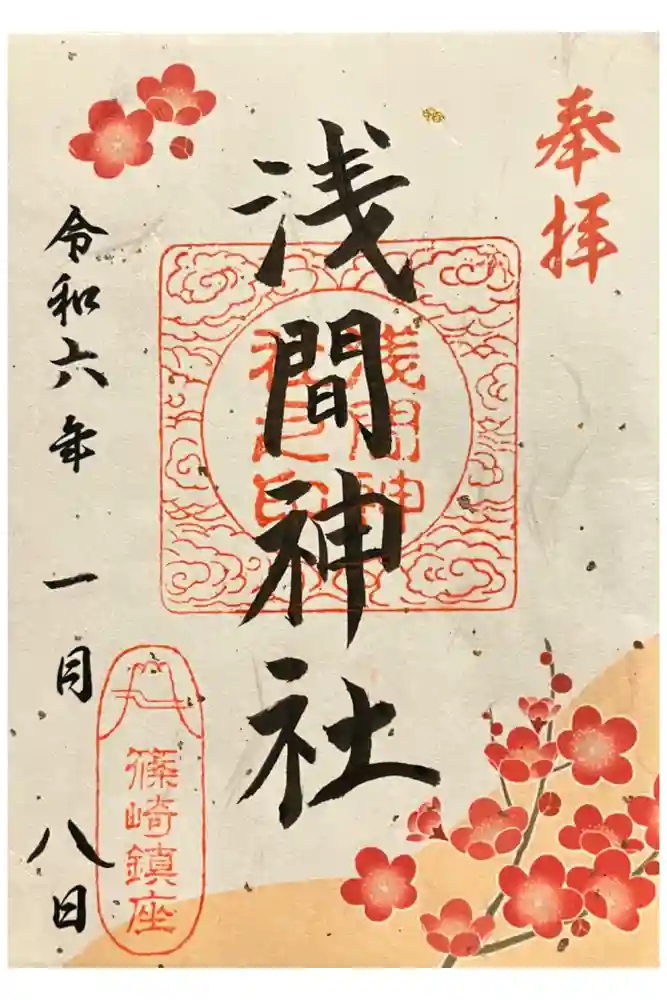 奉拝
浅間神社
浅間神
社之印
令和六年 一月 八日
篠崎鎮座